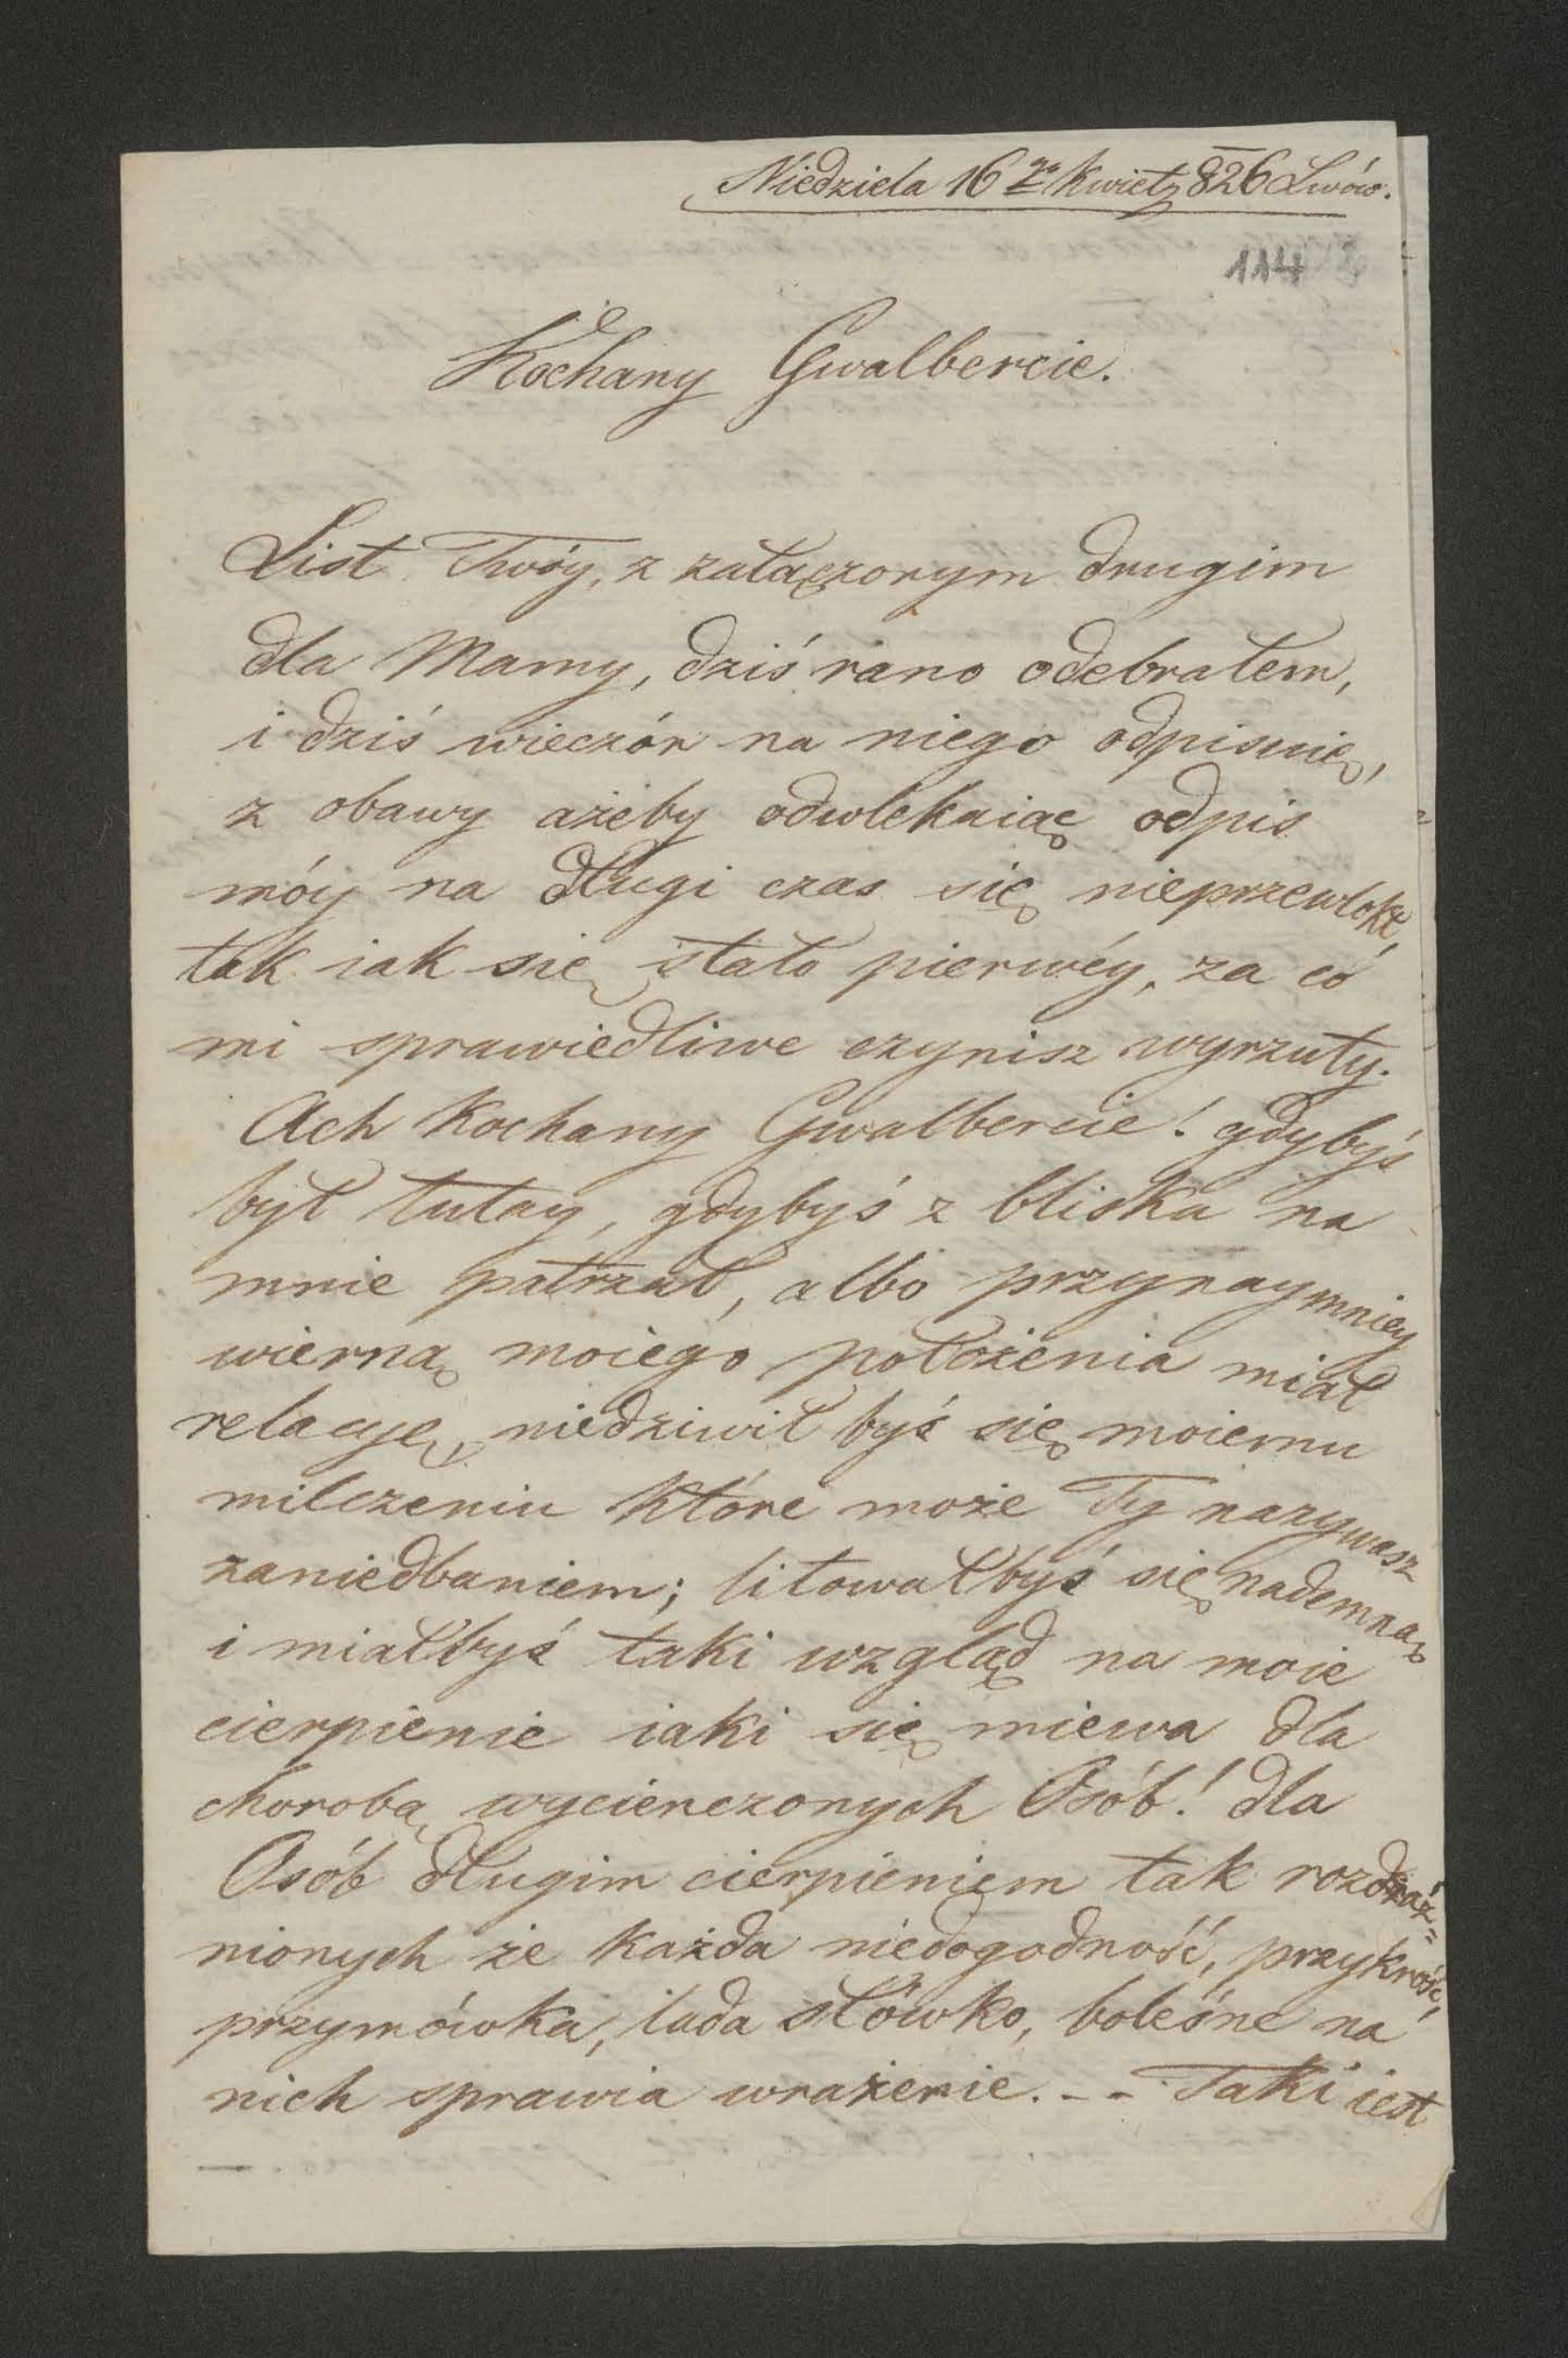 Niedziela 16go Kwietn 826 Lwów.
114
Kochany Gwalbercie.
List Twóy, z załączonym drugim
dla Mamy, dziś rano odebrałem,
i dziś wieczór na niego odpisuię,
z obawy ażeby odwlekaiąc odpis
móy na długi czas się nieprzewlokł,
tak iak się stało pierwéy, za co
mi sprawiedliwe czynisz wyrzuty.
Ach Kochany Gwalbercie! gdybyś
był tutay, gdybyś z bliska na
mnie patrzał, albo przynaymniey
wierną moiego położenia miał
relacyę, niedziwił byś się moiemu
milczeniu które może Ty nazywasz
zaniedbaniem; litowałbyś się nademną
i miałbyś taki wzgląd na moie
cierpienie iaki się miewa dla
chorobą wycienczonych Osób! dla
Osób długim cierpieniem tak rozdraź=
nionych że każda niedogodność, przykrość,
przymówka, lada słówko, boleśne na
nich sprawia wrażenie. -- Taki iest